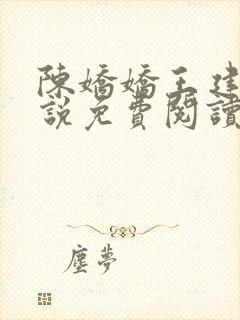 陳嬌嬌王建
說免費閱讀
塵夢